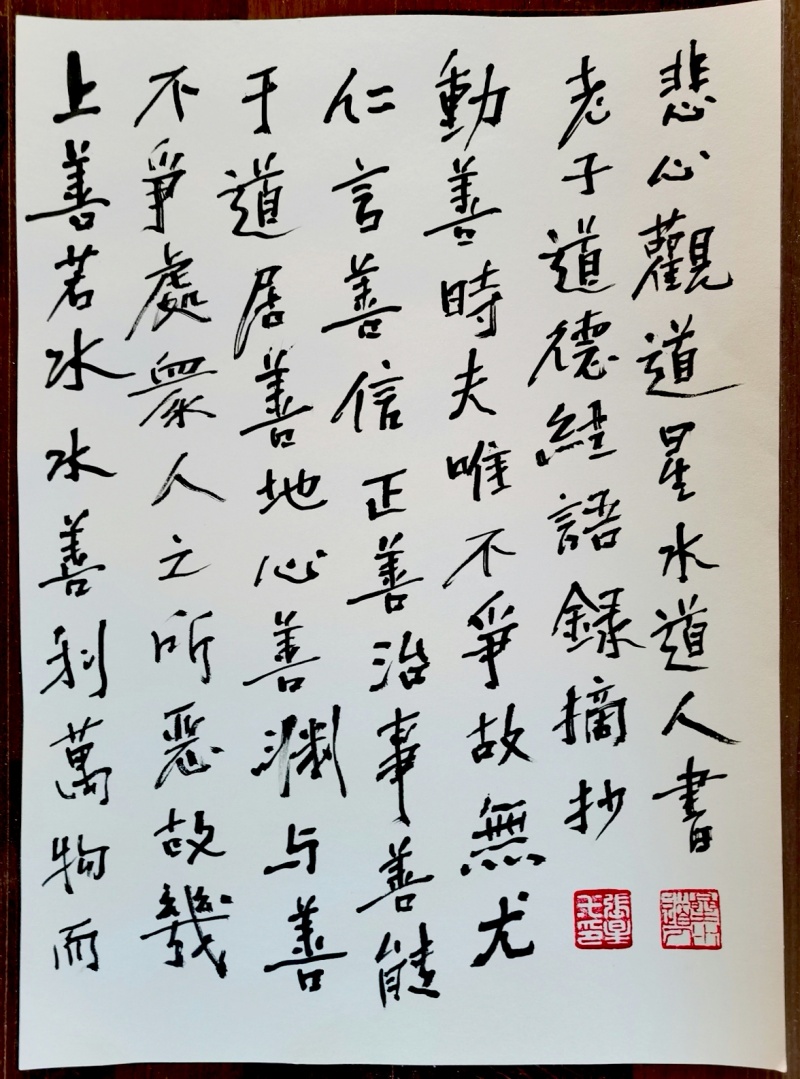 上善若水水善利萬物而
不爭處衆人之所惡故幾
于道居善地心善淵与善
仁言善信正善治事善能
動善時夫唯不爭故無尤
老子道德經語録摘抄
悲心觀道星水道人書